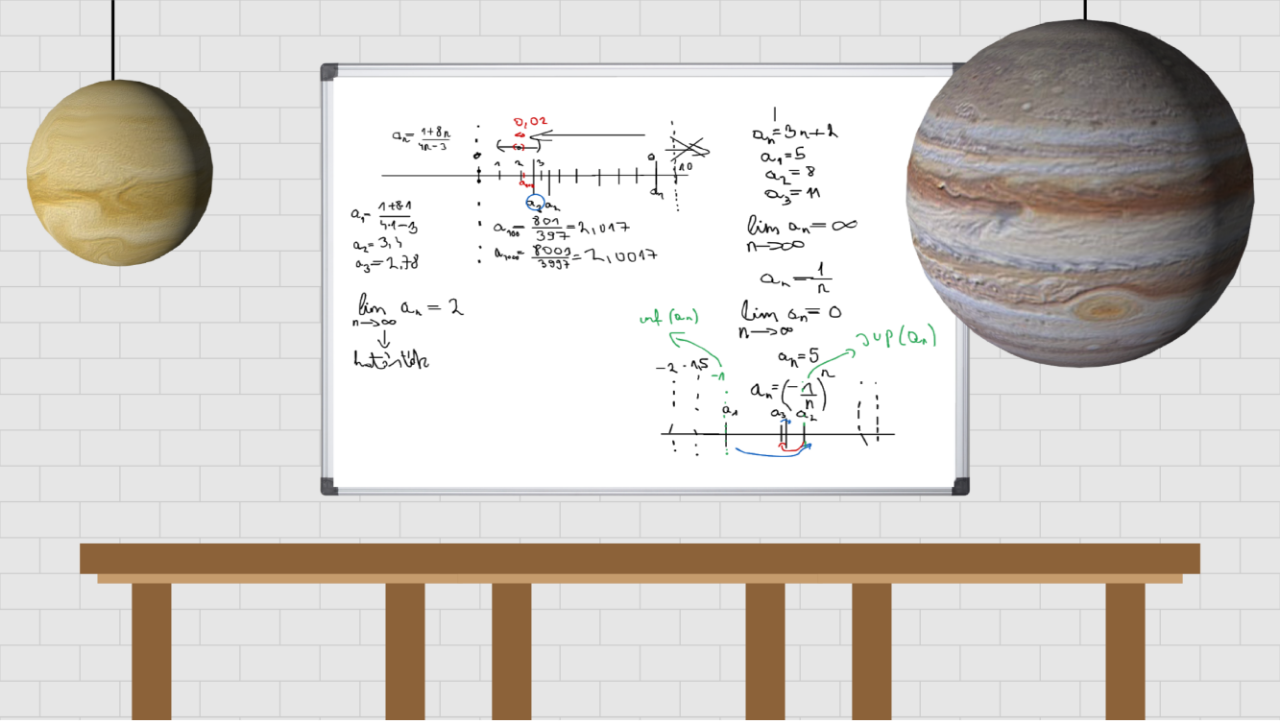 aₙ = (1+8n)/(4n-3)
0,02
1 2 3
9
10
a₃ a₂
a₁
a₁ = (1+8·1)/(4·1-3)
a₂ = 3,4
a₃ = 2,78
a₁₀₀ = 801/397 = 2,017
a₁₀₀₀ = 8001/3997 = 2,0017
lim aₙ = 2
n→∞
határérték
aₙ = 3n+2
a₁ = 5
a₂ = 8
a₃ = 11
lim aₙ = ∞
n→∞
aₙ = 1/n
lim aₙ = 0
n→∞
inf(aₙ)
sup(aₙ)
aₙ = 5
aₙ = (-1/n)ⁿ
-2 -1,5 -1
a₁ a₃ a₂